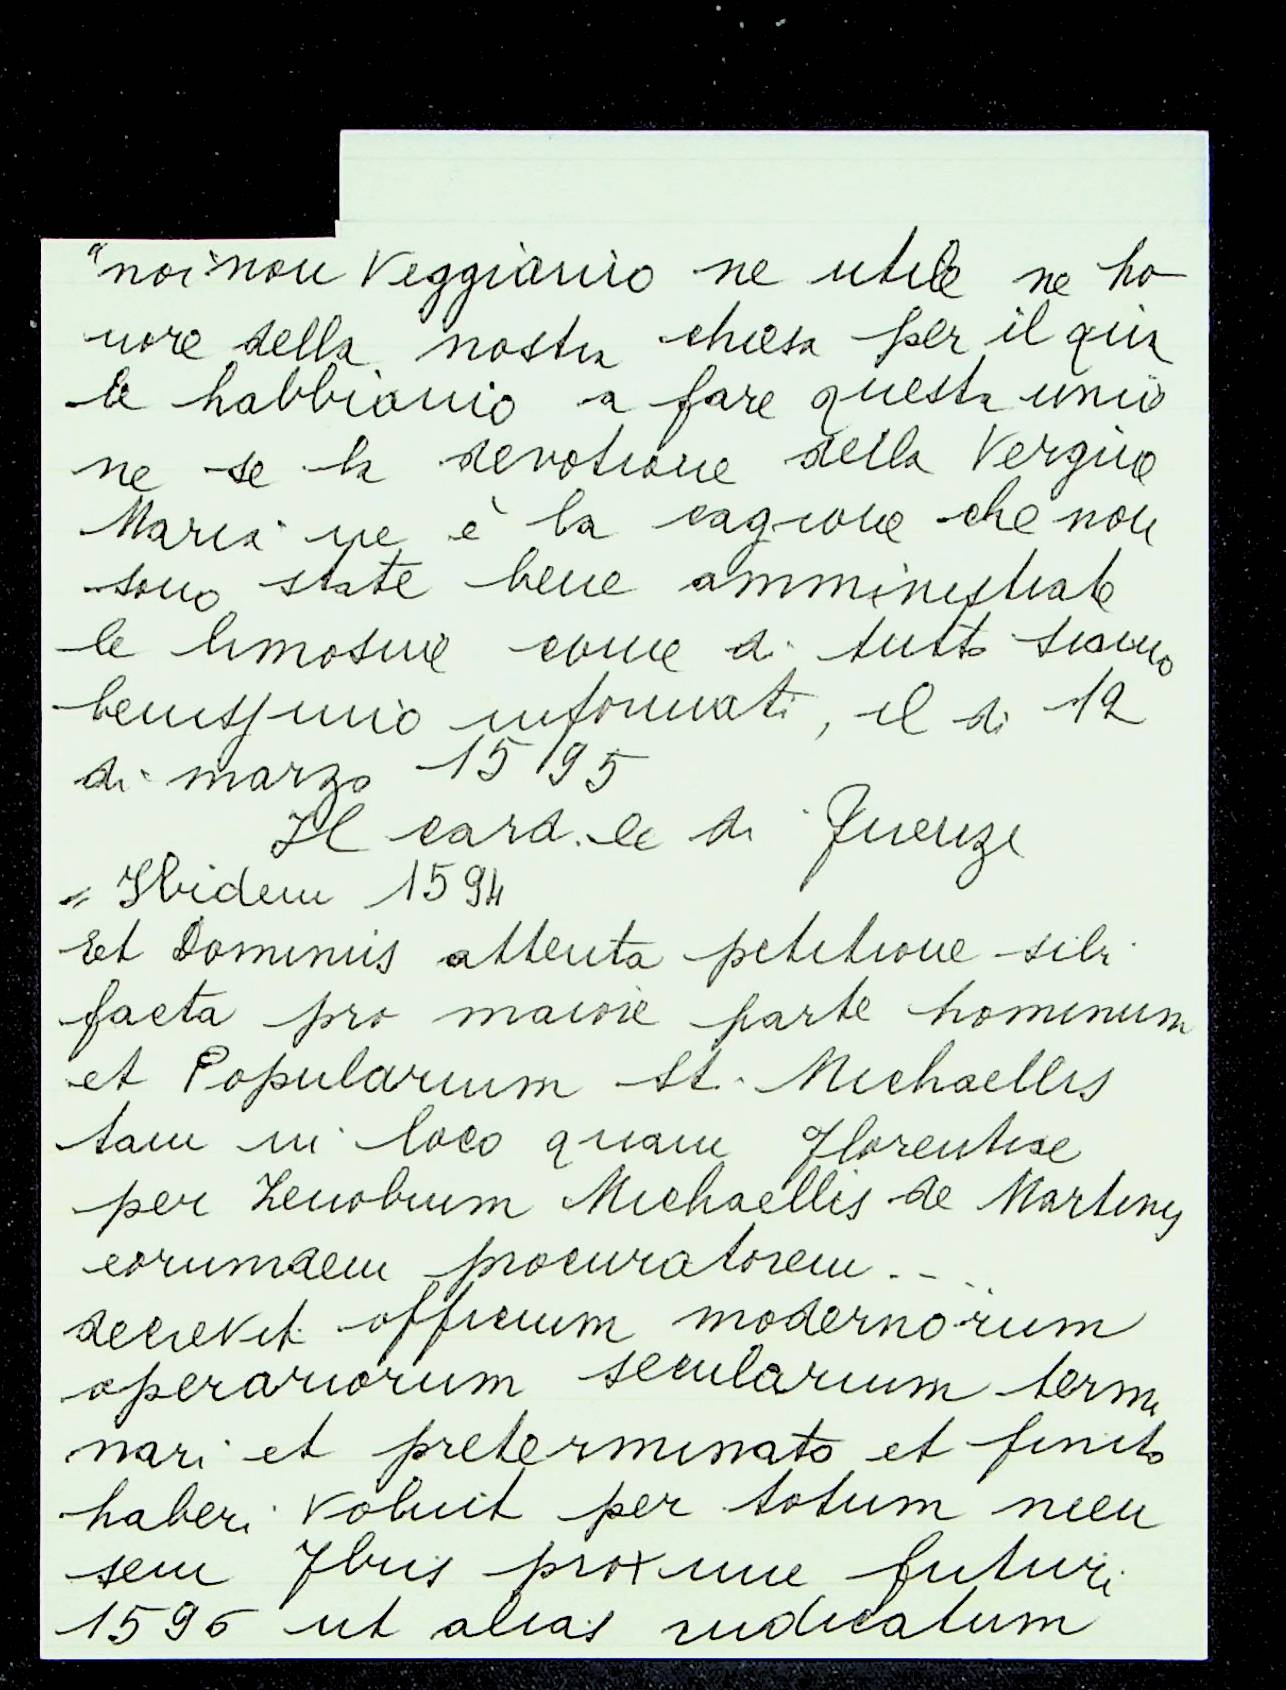 "noi non veggiamo ne utile ne ho
nore della nostra chiesa per il qua
le habbiamo a fare questa unio
ne se la devotione della Vergine
Maria ne è la cagione che non
sono state bene amministrate
le limosine come di tutto siamo
benissimo informati, il di 12
di marzo 1595
Il card.le di Firenze
" Ibidem 1594
Et Dominus attenta petitione sibi
facta pro maiore parte hominum
et Popularium St. Michaellis
tam in loco quam Florentiae
per Zenobium Michaellis de Martiny
eorumdem procuratorem...
decrevit officium modernorum
operariorum secularium termi
nari et preterminato et finito
haberi voluit per totum men
sem Jbris proxime futuri
1596 ut alias iudicatum